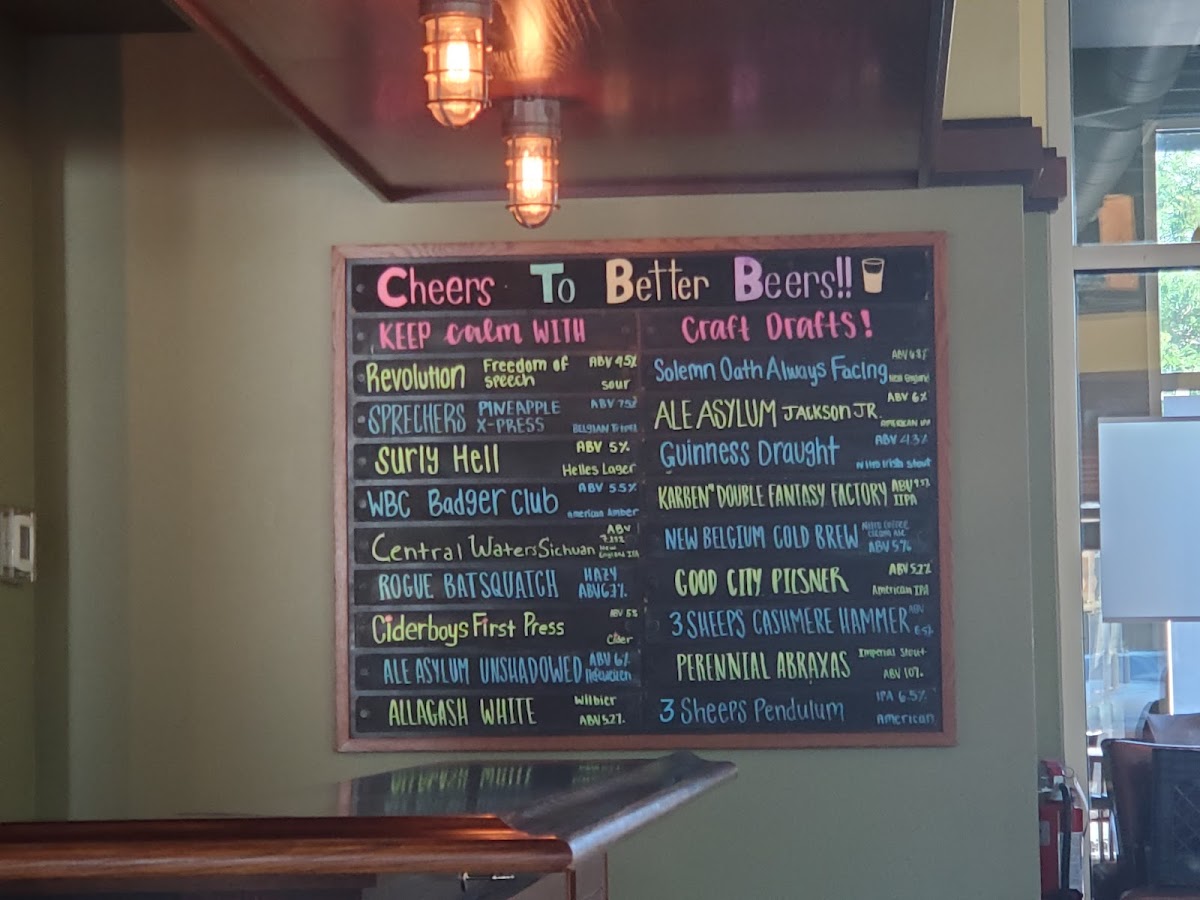 Cheers To Better Beers!!
KEEP calm WITH
Revolution Freedom of speech ABV 4.5% sour
SPRECHERS PINEAPPLE X-PRESS ABV BELGIAN
Surly Hell ABV 5% Helles Lager
WBC Badger Club ABV 5.5% american Amber
Central Waters Sichuan ABV
ROGUE BATSQUATCH HAZY ABV 6.7%
Ciderboys First Press ABV 5% Cider
ALE ASYLUM UNSHADOWED ABV 6% Hefeweizen
ALLAGASH WHITE Witbier ABV 5.2%
Craft Drafts!
Solemn Oath Always Facing ABV 6.8% New England
ALE ASYLUM JACKSON JR. ABV 6% AMERICAN IPA
Guinness Draught ABV 4.3% Nitro Irish stout
KARBEN DOUBLE FANTASY FACTORY ABV IIPA
NEW BELGIUM COLD BREW NITRO COFFEE CREAM ALE ABV 5%
GOOD CITY PILSNER ABV 5.2% American IPA
3 SHEEPS CASHMERE HAMMER ABV 6.5%
PERENNIAL ABRAXAS Imperial Stout ABV 10%
3 Sheeps Pendulum IPA 6.5% American